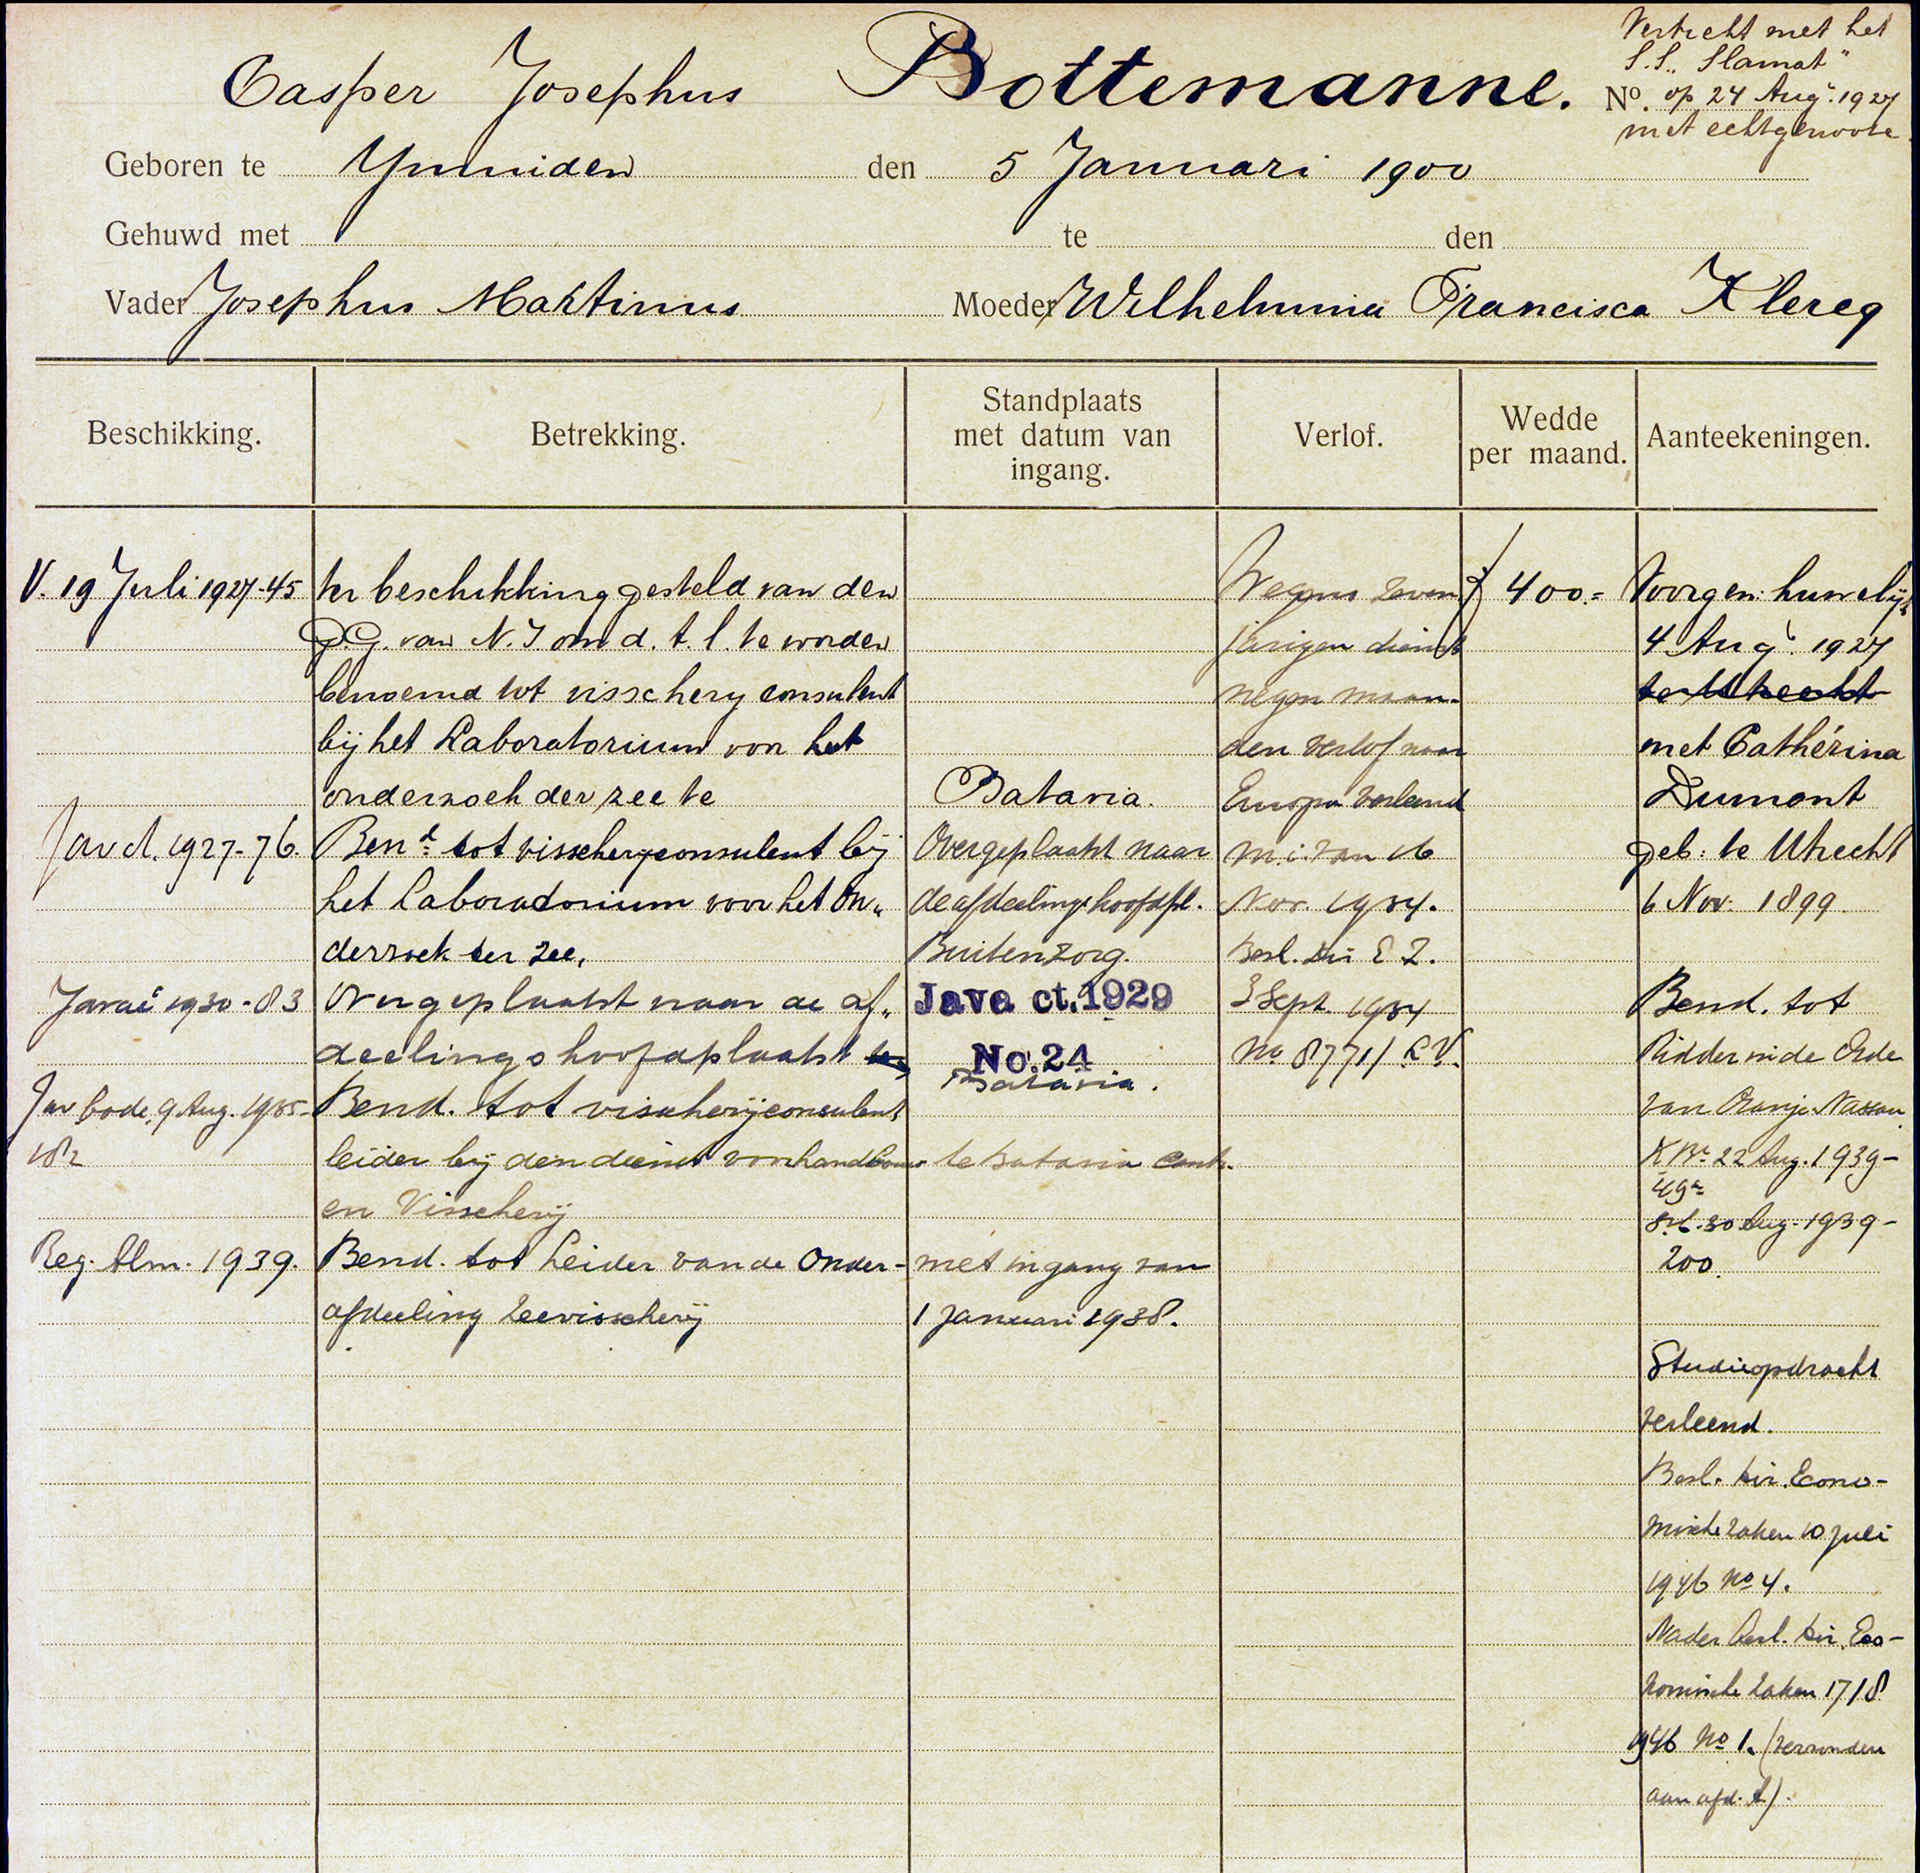 Vertrecht met het
S.S. „Slamat"
Casper Josephus Bottemanne. No. op 24 Aug. 1927
met echtgenoote
Geboren te Ymuiden den 5 Januari 1900
Gehuwd met te den
Vader Josephus Martinus Moeder Wilhelmina Francisca Klercq
Beschikking.
Betrekking.
Standplaats
met datum van
ingang.
Verlof.
Wedde
per maand.
Aanteekeningen.
V. 19 Juli 1927-45
ter beschikking gesteld van den
G.G. van N.I om d. t. l. te worden
benoemd tot visschery consulent
bij het Laboratorium voor het
onderzoek der zee te
Batavia.
Jav ct. 1927-76.
Bend: tot visscheryconsulent bij
het Laboradorium voor het On„
derzoek ter zee.
Overgeplaatst naar
de afdeelingshoofdpl.
Buitenzorg.
Java ct. 1929
No. 24
Javact 1930-83
Overgeplaatst naar de af„
deelingshoofdplaatst te
Batavia.
Jav bode, 9 Aug. 1935-
182
Bend. tot visscherijconsulent
leider bij den dienst voor landbouw
en Visscherij
te Batavia Centr.
Reg. Alm. 1939.
Bend. tot Leider van de Onder-
afdeeling Zeevisscherij
met ingang van
1 Januari 1938.
Wegens zeven
jarigen dienst
negen maan-
den verlof naar
Europa verleend
m.i. van 16
Nov. 1934.
Besl. Dir E Z.
3 Sept. 1934
No 8771/L.V.
400.=
Voorgen: huwelijk
4 Aug. 1927
te Utrecht
met Cathérina
Dumont
geb: te Utrecht
6 Nov. 1899.
Bend. tot
Ridder in de Orde
van Oranje Nassau
K.B. 22 Aug. 1939-
49
Stct. 30 Aug. 1939-
200.
Studieopdracht
verleend.
Besl. Dir. Econo-
mische Zaken 10 Juli
1946 No 4.
Nader Besl. Dir. Eco-
nomische Zaken 17/8
1946 No 1. (verzonden
aan afd. A).